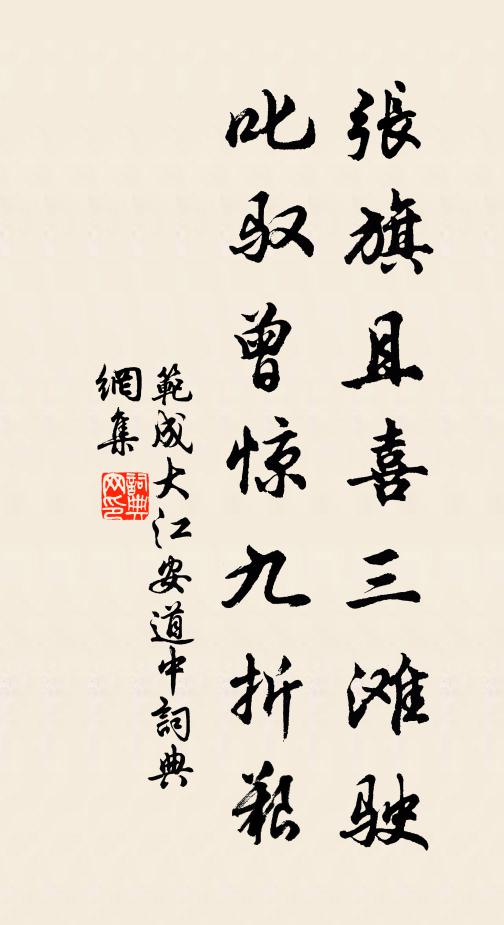 張旗且喜三滩驶
叱驭曾惊九折艱
範成大江安道中詞典
網集
詞典网印